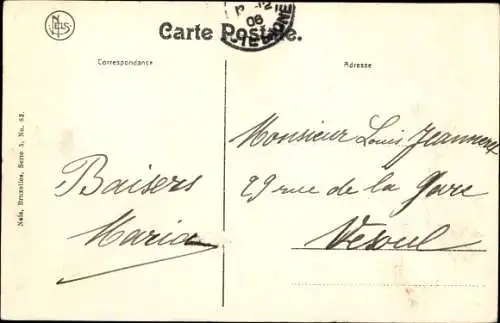 NELS
12
06
Carte Postale.
Correspondance
Adresse
Nels, Bruxelles, Serie 1, No. 62.
Monsieur Louis
29 rue de la Gare
Vesoul
Baisers
Maria